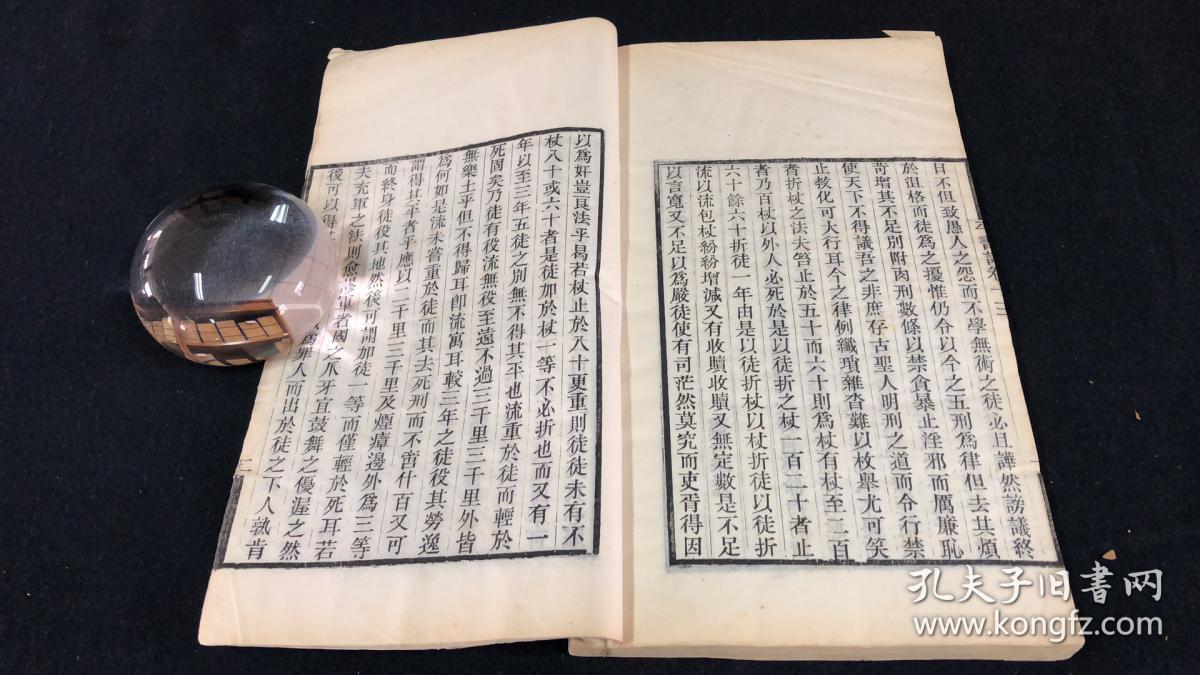 日不但致愚人之怨而不學無術之徒必且譁然謗議終
於沮格而徒爲之擾惟仍令以今之五刑爲律但去其煩
苛增其不足別附肉刑數條以禁貪暴止淫邪而厲廉恥
使天下不得議吾之非庶存古聖人明刑之道而令行禁
止教化可大行耳今之律例纖瑣雜沓難以枚舉尤可笑
者折杖之法夫笞止於五十而六十則爲杖有杖至二百
者乃百杖以外人必死於是以徒折之杖一百二十者止
六十餘六十折徒一年由是以徒折杖以杖折徒以徒折
流以流包杖紛紛增減又有收贖收贖又無定數是不足
以言寬又不足以爲嚴徒使有司茫然莫究而吏胥得因
以爲奸豈良法乎曷若杖止於八十更重則徒徒未有不
杖八十或六十者是徒加於杖一等不必折也而又有一
年以至三年五徒之別無不得其平也流重於徒而輕於
死固矣乃徒有役流無役至遠不過三千里三千里外皆
無樂土乎但不得歸耳卽流寓耳較三年之徒役其勞逸
爲何如是流未嘗重於徒而其去死刑而不啻什百又可
謂得其平者乎應以二千里三千里及煙瘴邊外爲三等
而終身徒役其地然後可謂加徒一等而僅輕於死耳若
夫充軍之法則愈謬軍者國之爪牙宜鼓舞之優渥之然
後可以得 爲罪人而出於徒之下人孰肯
平書訂卷 三
二
孔夫子旧书网
www.kongfz.com